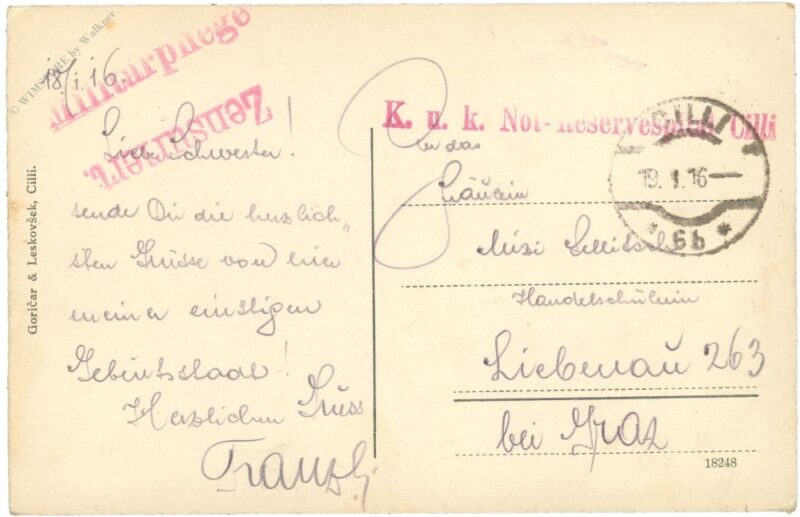 © WIMSTORE by Walkner
Militärpflege
Zensuriert.
18/I.16.
Liebe Schwester!
sende Dir die herzlich„
sten Grüsse von hier
meiner einstigen
Geburtsstadt!
Herzlichen Gruss
Franzl.
Goričar & Leskovšek, Cilli.
K. u. k. Not-Reservespital Cilli
CILLI
19.I.16
* 6b *
An das
Fräulein
Mizi
Handelsschülerin
Liebenau 263
bei Graz
18248